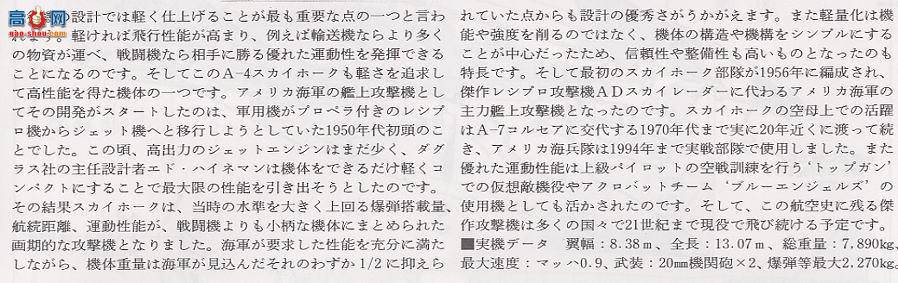 高手网
nao-shou.com
の設計では軽く仕上げることが最も重要な点の一つと言わ
れます。軽ければ飛行性能が高まり、例えば輸送機ならより多く
の物資が運べ、戦闘機なら相手に勝る優れた運動性を発揮できる
ことになるのです。そしてこのA−4スカイホークも軽さを追求し
て高性能を得た機体の一つです。アメリカ海軍の艦上攻撃機とし
てその開発がスタートしたのは、軍用機がプロペラ付きのレシプ
ロ機からジェット機へと移行しようとしていた1950年代初頭のこ
とでした。この頃、高出力のジェットエンジンはまだ少く、ダグ
ラス社の主任設計者エド・ハイネマンは機体をできるだけ軽くコ
ンパクトにすることで最大限の性能を引き出そうとしたのです。
その結果スカイホークは、当時の水準を大きく上回る爆弾搭載量、
航続距離、運動性能が、戦闘機よりも小柄な機体にまとめられた
画期的な攻撃機となりました。海軍が要求した性能を充分に満た
しながら、機体重量は海軍が見込んだそれのわずか1/2に抑えら
れていた点からも設計の優秀さがうかがえます。また軽量化は機
能や強度を削るのではなく、機体の構造や機構をシンプルにする
ことが中心だったため、信頼性や整備性も高いものとなったのも
特長です。そして最初のスカイホーク部隊が1956年に編成され、
傑作レシプロ攻撃機ADスカイレーダーに代わるアメリカ海軍の
主力艦上攻撃機となったのです。スカイホークの空母上での活躍
はA−7コルセアに交代する1970年代まで実に20年近くに渡って続
き、アメリカ海兵隊は1994年まで実戦部隊で使用しました。また
優れた運動性能は上級パイロットの空戦訓練を行う‘トップガン’
での仮想敵機役やアクロバットチーム‘ブルーエンジェルズ’の
使用機としても活かされたのです。そして、この航空史に残る傑
作攻撃機は多くの国々で21世紀まで現役で飛び続ける予定です。
■実機データ 翼幅：8.38m、全長：13.07m、総重量：7.890kg、
最大速度：マッハ0.9、武装：20mm機関砲×2、爆弾等最大2.270kg。